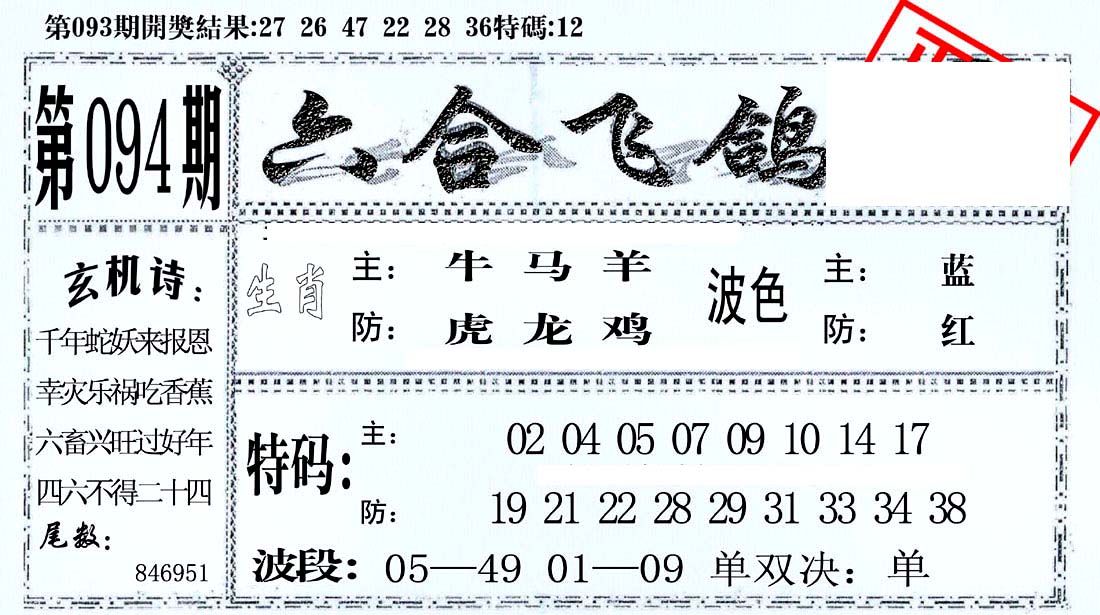 第093期開獎結果:27 26 47 22 28 36特碼:12
第094期
六合飞鸽
玄机诗:
千年蛇妖来报恩
幸灾乐祸吃香蕉
六畜兴旺过好年
四六不得二十四
尾数:
846951
生肖
主: 牛 马 羊
防: 虎 龙 鸡
波色
主: 蓝
防: 红
特码:
主: 02 04 05 07 09 10 14 17
防: 19 21 22 28 29 31 33 34 38
波段: 05—49 01—09 单双决: 单